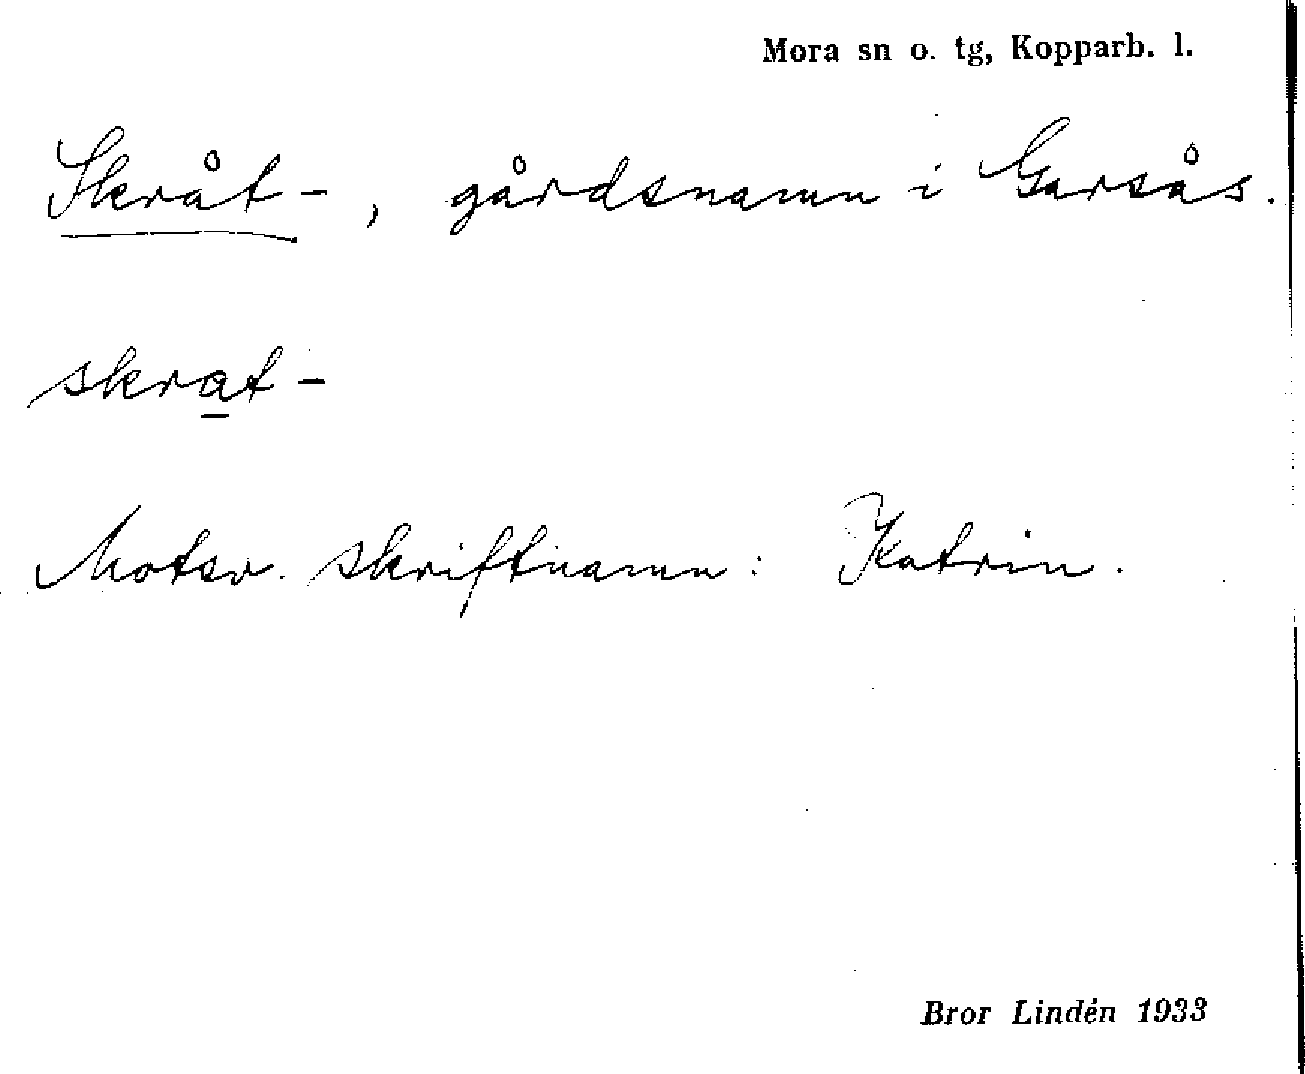 Mora sn o. tg, Kopparb. l.
Skråt-, gårdsnamn i Garsås.
skrat-
Motsv. skriftnamn: Katrin.
Bror Lindén 1933